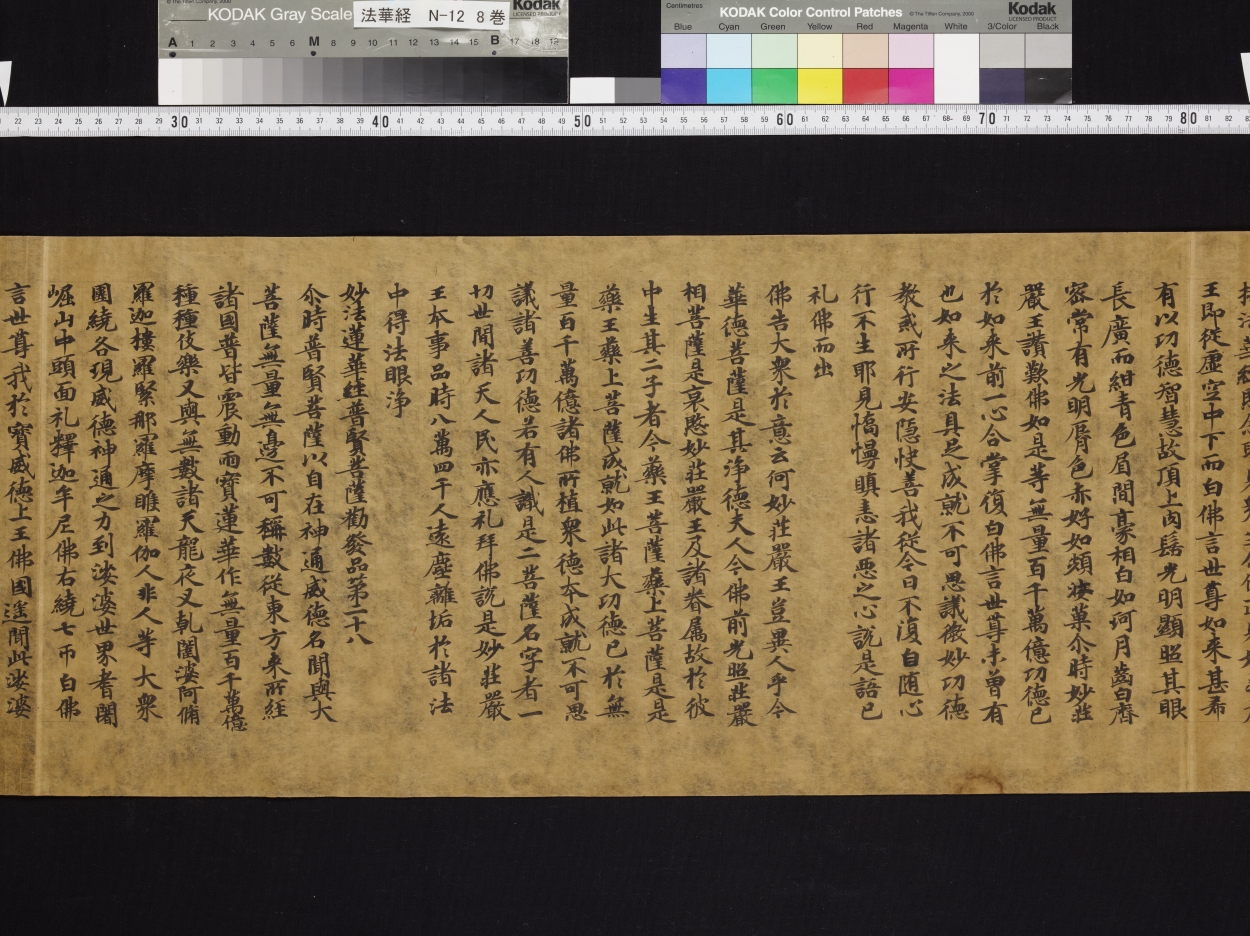 © The Tiffen Company, 2000
KODAK Gray Scale
法華経 N-12 8巻
Kodak
LICENSED PRODUCT
A 1 2 3 4 5 6 M 8 9 10 11 12 13 14 15 B 17 18 19
Centimetres
KODAK Color Control Patches
© The Tiffen Company, 2000
Kodak
LICENSED PRODUCT
Blue Cyan Green Yellow Red Magenta White 3/Color Black
22 23 24 25 26 27 28 29 30 31 32 33 34 35 36 37 38 39 40 41 42 43 44 45 46 47 48 49 50 51 52 53 54 55 56 57 58 59 60 61 62 63 64 65 66 67 68 69 70 71 72 73 74 75 76 77 78 79 80 81 82
王即從虛空中下而白佛言世尊如来甚希
有以功德智慧故頂上肉髻光明顯照其眼
長廣而紺青色眉間豪相白如珂月齒白齊
密常有光明脣色赤好如頻婆菓尒時妙莊
嚴王讚歎佛如是等無量百千萬億功德已
於如来前一心合掌復白佛言世尊未曾有
也如来之法具足成就不可思議微妙功德
教戒所行安隱快善我從今日不復自随心
行不生耶見憍慢瞋恚諸惡之心說是語已
礼佛而出
佛告大衆於意云何妙莊嚴王豈異人乎今
華德菩薩是其淨德夫人今佛前光照莊嚴
相菩薩是哀愍妙莊嚴王及諸眷属故於彼
中生其二子者今藥王菩薩藥上菩薩是是
藥王藥上菩薩成就如此諸大功德已於無
量百千萬億諸佛所植衆德本成就不可思
議諸善功德若有人識是二菩薩名字者一
切世間諸天人民亦應礼拜佛說是妙莊嚴
王本事品時八萬四千人遠塵離垢於諸法
中得法眼淨
妙法蓮華經普賢菩薩勸發品第二十八
尒時普賢菩薩以自在神通威德名聞與大
菩薩無量無邊不可稱數從東方来所經
諸國普皆震動雨寶蓮華作無量百千萬億
種種伎樂又與無數諸天龍夜叉乹闥婆阿脩
羅迦樓羅緊那羅摩睺羅伽人非人等大衆
圍繞各現威德神通之力到娑婆世界耆闍
崛山中頭面礼釋迦牟尼佛右繞七帀白佛
言世尊我於寳威德上王佛國遥聞此娑婆